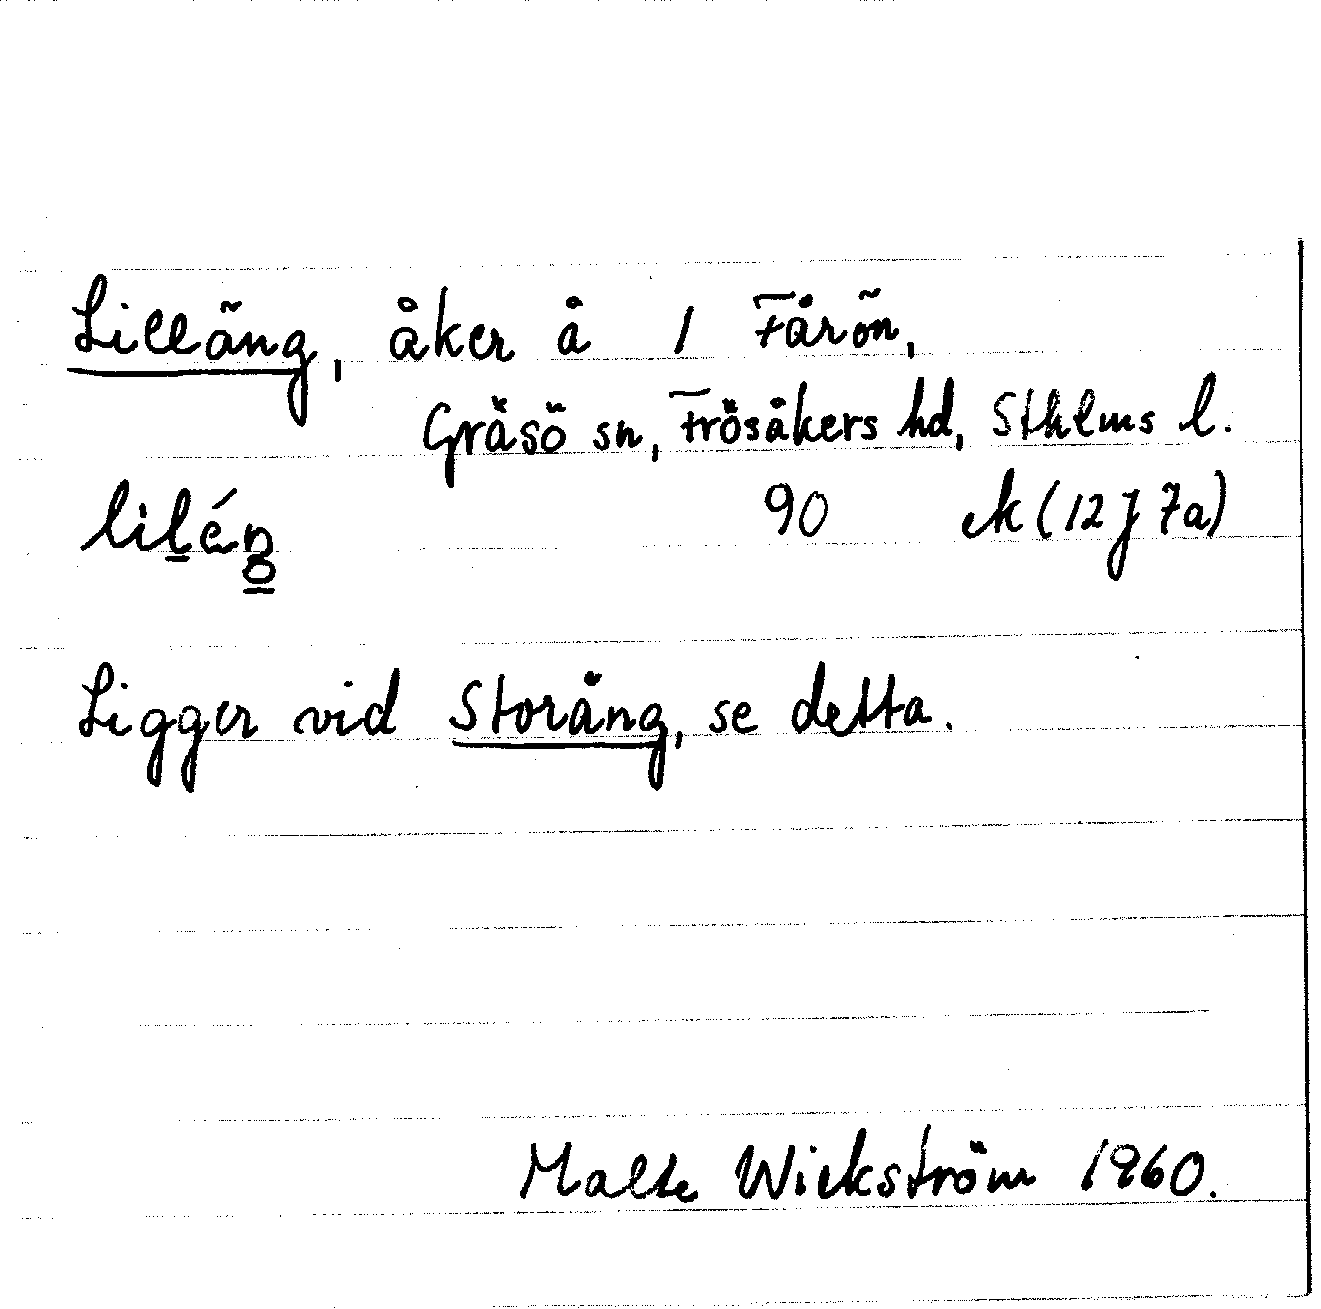 Lilläng, åker å 1 Fårön,
Gräsö sn, Frösåkers hd, Sthlms l.
liléŋ 90 ek (12 J 7a)
Ligger vid Storäng, se detta.
Malte Wickström 1960.